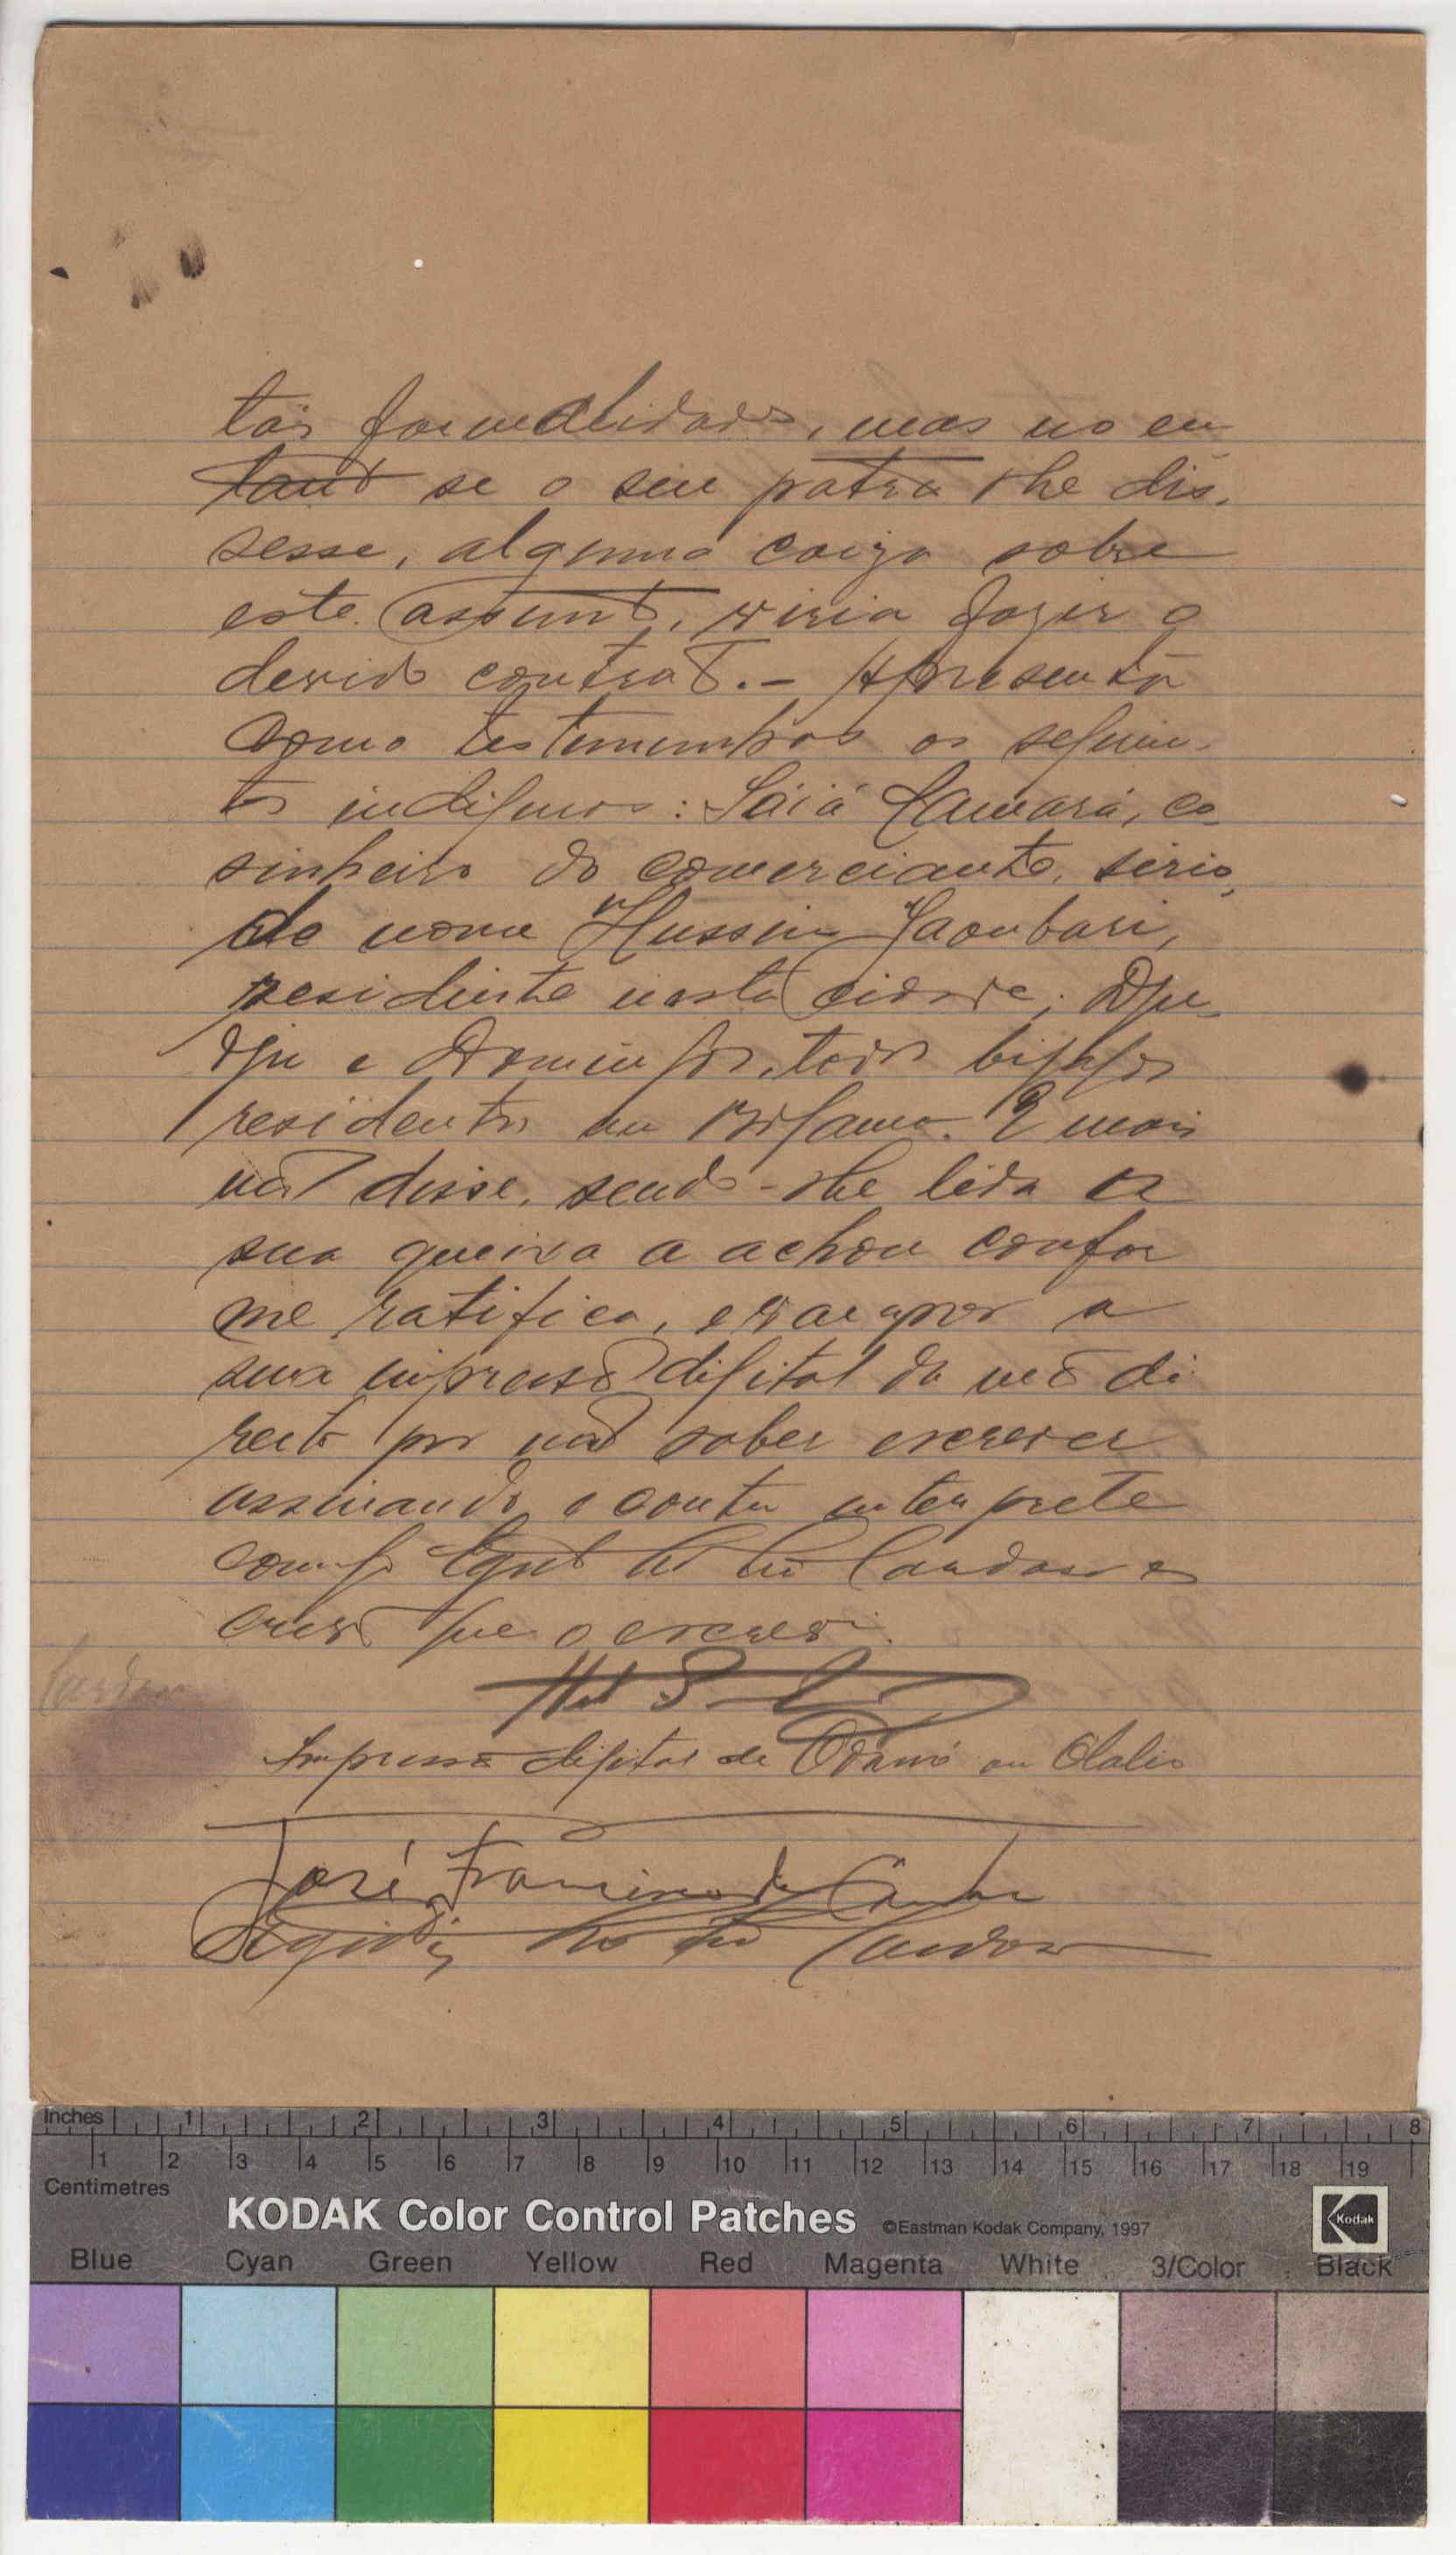 tas formalidades, mas no en
tanto se o seu patrão lhe dis-
sesse, alguma coiza sobre
este assunto, viria fazer o
devido contrato.- Apresenta
como testemunhas os seguin-
tes indigenas: Sáiá Camará, co-
sinheiro do comerciante, sirio,
de nome Hussein Jaoubari,
residente nesta cidade; Dju-
dju e Domingos, todos bijagós
residentes em . E mais
não disse, sendo-lhe lida a
sua queixa a achou confor
me ratifica, e vae apor a
sua impressão digital da mão di
reita por não saber escrever
assinando o interprete
comigo Candoso es
que o escrevi.
Impressão digital de Odamó ou Olalio
José Francisco da
Cardoso
Inches 1 2 3 4 5 6 7 8
1 2 3 4 5 6 7 8 9 10 11 12 13 14 15 16 17 18 19
Centimetres
KODAK Color Control Patches ©Eastman Kodak Company, 1997 Kodak
Blue Cyan Green Yellow Red Magenta White 3/Color Black